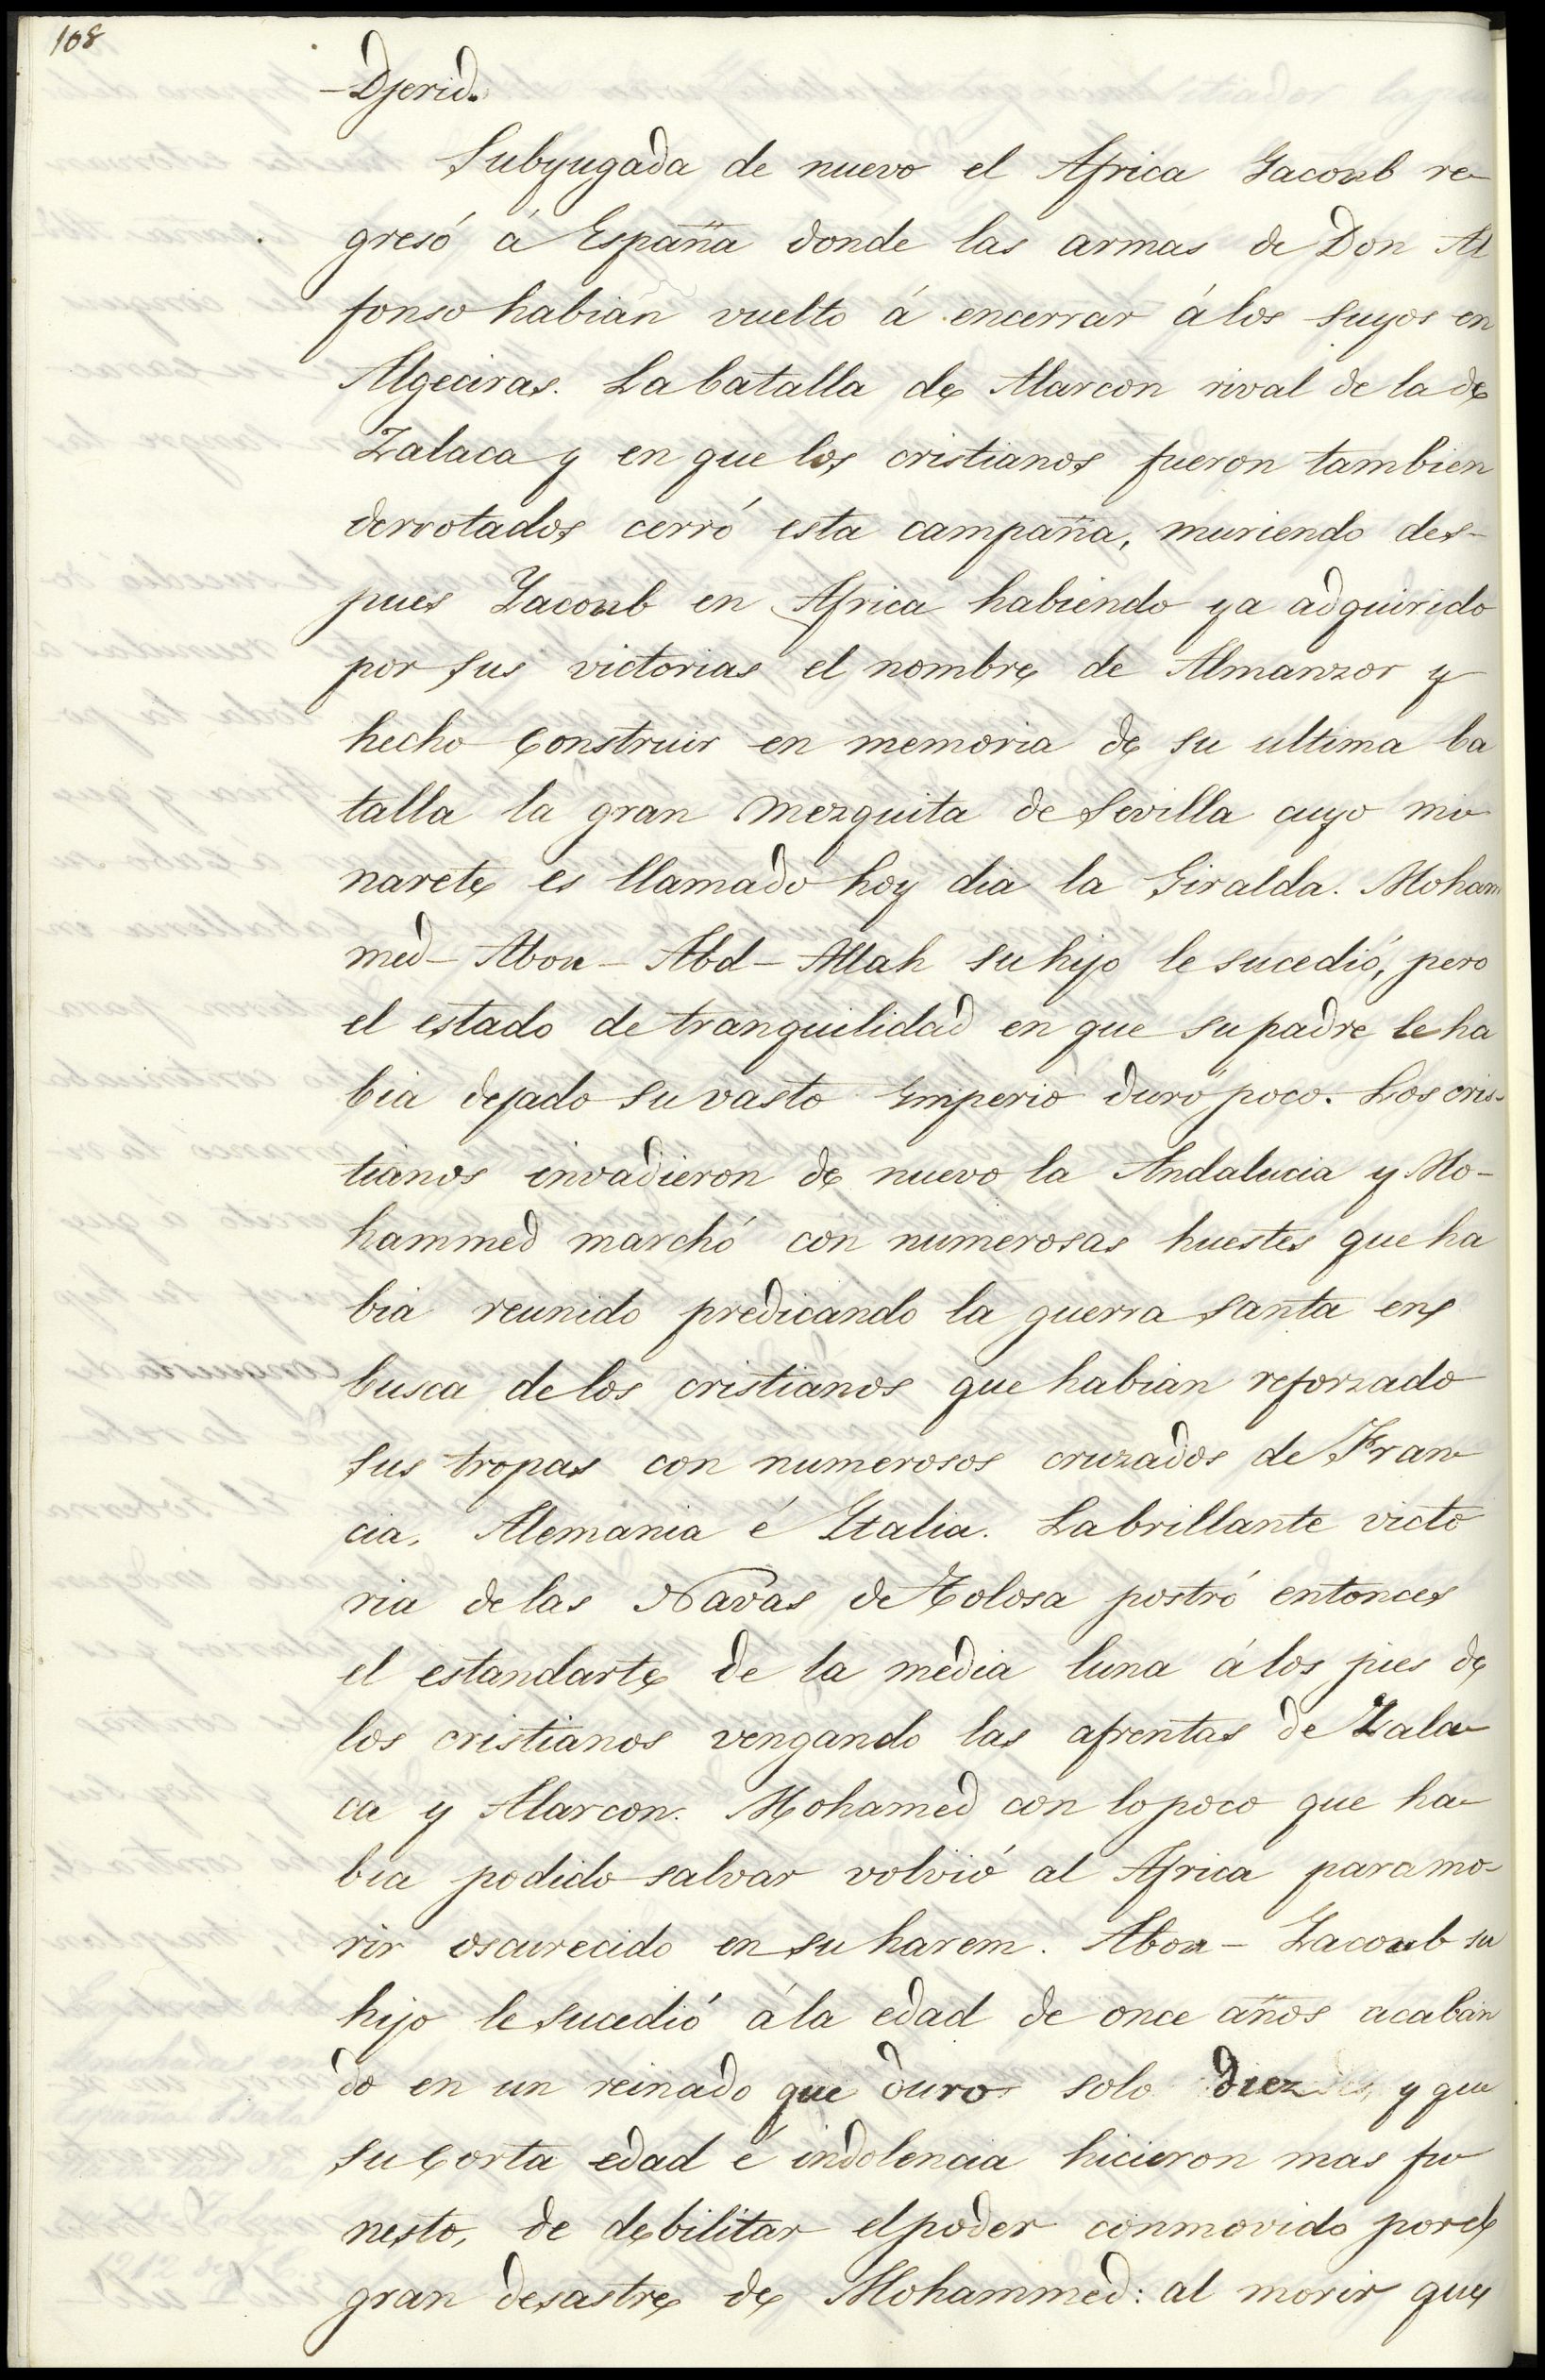 108
-Djerid.
Subyugada de nuevo el Africa Yacoub re-
gresó á España donde las armas de Don Al
fonso habian vuelto á encerrar á los suyos en
Algeciras. La batalla de Alarcon rival de la de
Zalaca y en que los cristianos fueron tambien
derrotados cerró esta campaña, muriendo des-
pues Yacoub en Africa habiendo ya adquirido
por sus victorias el nombre de Almanzor y
hecho construir en memoria de su ultima ba
talla la gran Mezquita de Sevilla cuyo mi-
narete es llamado hoy dia la Giralda. Moham
med-Abou-Abd-Allah su hijo le sucedió, pero
el estado de tranquilidad en que su padre le ha
bia dejado su vasto Imperio duró poco. Los cris-
tianos invadieron de nuevo la Andalucia y Mo-
hammed marchó con numerosas huestes que ha
bia reunido predicando la guerra santa en
busca de los cristianos que habian reforzado
sus tropas con numerosos cruzados de Fran-
cia, Alemania é Italia. La brillante victo
ria de las Navas de Tolosa postró entonces
el estandarte de la media luna á los pies de
los cristianos vengando las afrentas de Zala-
ca y Alarcon. Mohamed con lo poco que ha-
bia podido salvar volvió al Africa para mo-
rir oscurecido en su harem. Abou-Yacoub su
hijo le sucedió á la edad de once años acaban
do en un reinado que duro solo diez y que
su corta edad é indolencia hicieron mas fu-
nesto, de debilitar el poder conmovido por el
gran desastre de Mohammed: al morir que